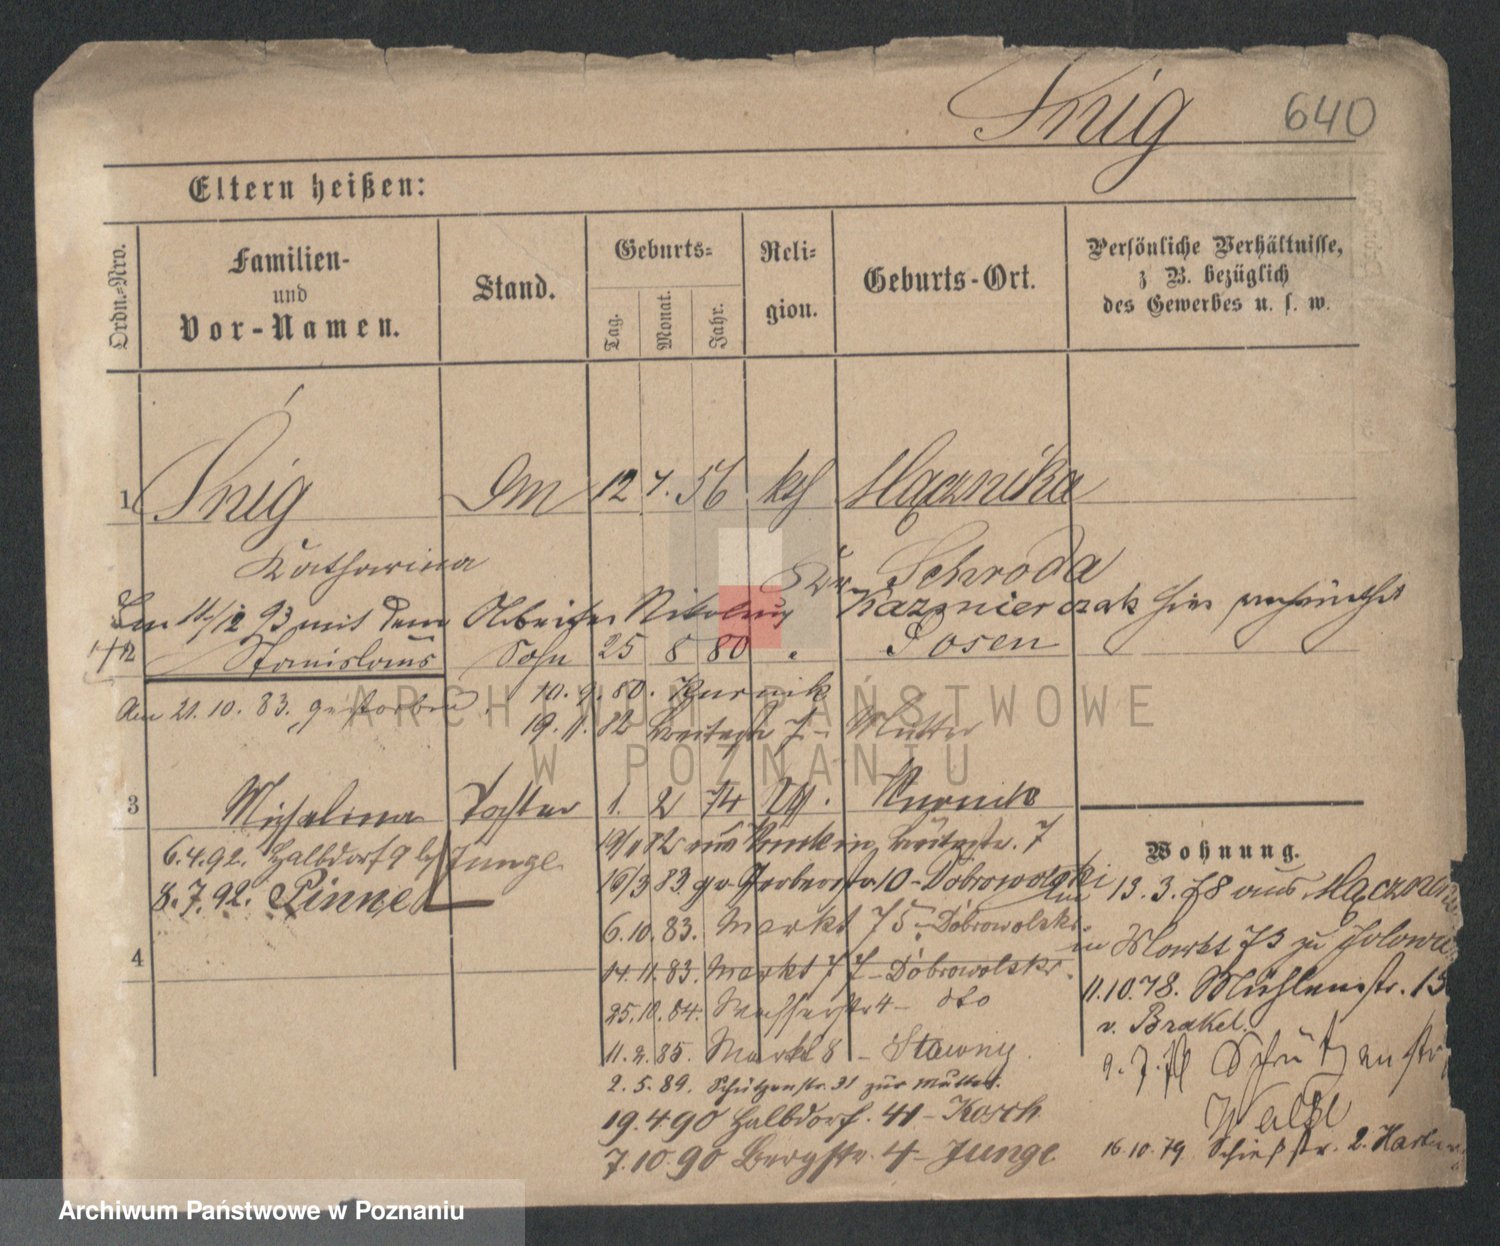 Śnig 640
Eltern heißen:
Ordn.-Nro.
Familien-
und
Vor-Namen.
Stand.
Geburts-
Tag.
Monat.
Jahr.
Reli-
gion.
Geburts-Ort.
Persönliche Verhältnisse,
z B. bezüglich
des Gewerbes u. s. w.
1 Śnig 12 7. 56 kth Mącznika
Katharina Schroda
11/2 93 mit dem Arbeiter Nikolaus Kazmierczak hier
2 Stanislaus Sohn 25 8 80 " Posen
Am 21.10.83. gestorben. 10.9.80. Kurnik
19.11.82 Breitestr 7 – Mutter
3 Michalina Tochter 1. 2 74 kth. Kurnik
6.4.92. Halbdorf 9 bei Junge
8.7.92. Pinne
19/11 82 aus Kurnik in Breitestr. 7
16/3 83. Gerberstr 10 – Dobrowolski
6.10.83. Markt 75 – Dobrowolski
4
14.11.83. Markt 77 – Dobrowolski.
25.10.84. Wasserstr 4 – dto
11.2.85. Markt 8 – Stawny.
2.5.89. Schützenstr. 31 zur Mutter.
19.4.90 Halbdorf. 41 – Kosch
7.10.90 Bergstr. 4 – Junge
Wohnung.
13.3.78 aus
Markt 73 zu
11.10.78. Mühlenstr. 13
v. Brakel.
Schützenstr
16.10.79 Schießstr. 2.
Archiwum Państwowe
w Poznaniu
Archiwum Państwowe w Poznaniu